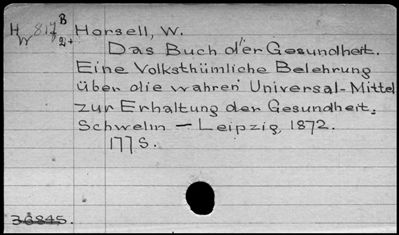 Horsell, W.
Das Buch der Gesundheit.
Eine Volksthümliche Belehrung
über die wahren Universal-Mittel
zur Erhaltung der Gesundheit.
Schwelm - Leipzig, 1872.
177 S.
36845.